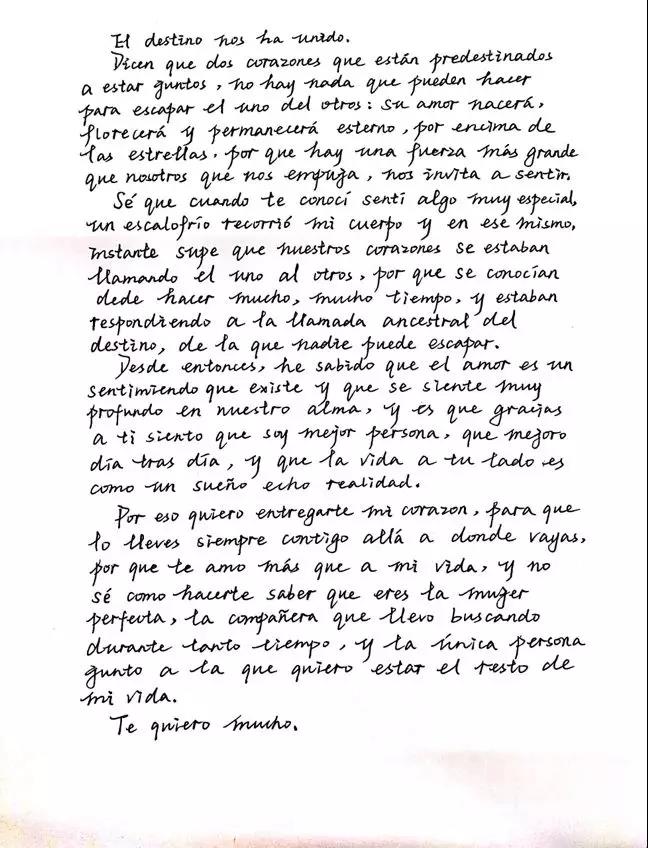 El destino nos ha unido.
Dicen que dos corazones que están predestinados
a estar guntos, no hay nada que pueden hacer
para escapar el uno del otros: su amor nacerá,
florecerá y permanecerá esterno, por encima de
las estrellas, por que hay una fuerza más grande
que nosotros que nos empuja, nos invita a sentir.
Sé que cuando te conocí sentí algo muy especial,
un escalofrío recorrió mi cuerpo y en ese mismo,
instante supe que nuestros corazones se estaban
llamando el uno al otros, por que se conocían
dede hacer mucho, mucho tiempo, y estaban
respondiendo a la llamada ancestral del
destino, de la que nadie puede escapar.
Desde entonces, he sabido que el amor es un
sentimiendo que existe y que se siente muy
profundo en nuestro alma, y es que gracjas
a ti siento que soy mejor persona, que mejoro
día tras día, y que la vida a tu lado es
como un sueño echo realidad.
Por eso quiero entregarte mi corazon, para que
lo lleves siempre contigo allá a donde vayas,
por que te amo más que a mi vida, y no
sé como hacerte saber que eres la mujer
perfecta, la compañera que llevo buscando
durante tanto tiempo, y la única persona
gunto a la que quiero estar el resto de
mi vida.
Te quiero mucho.